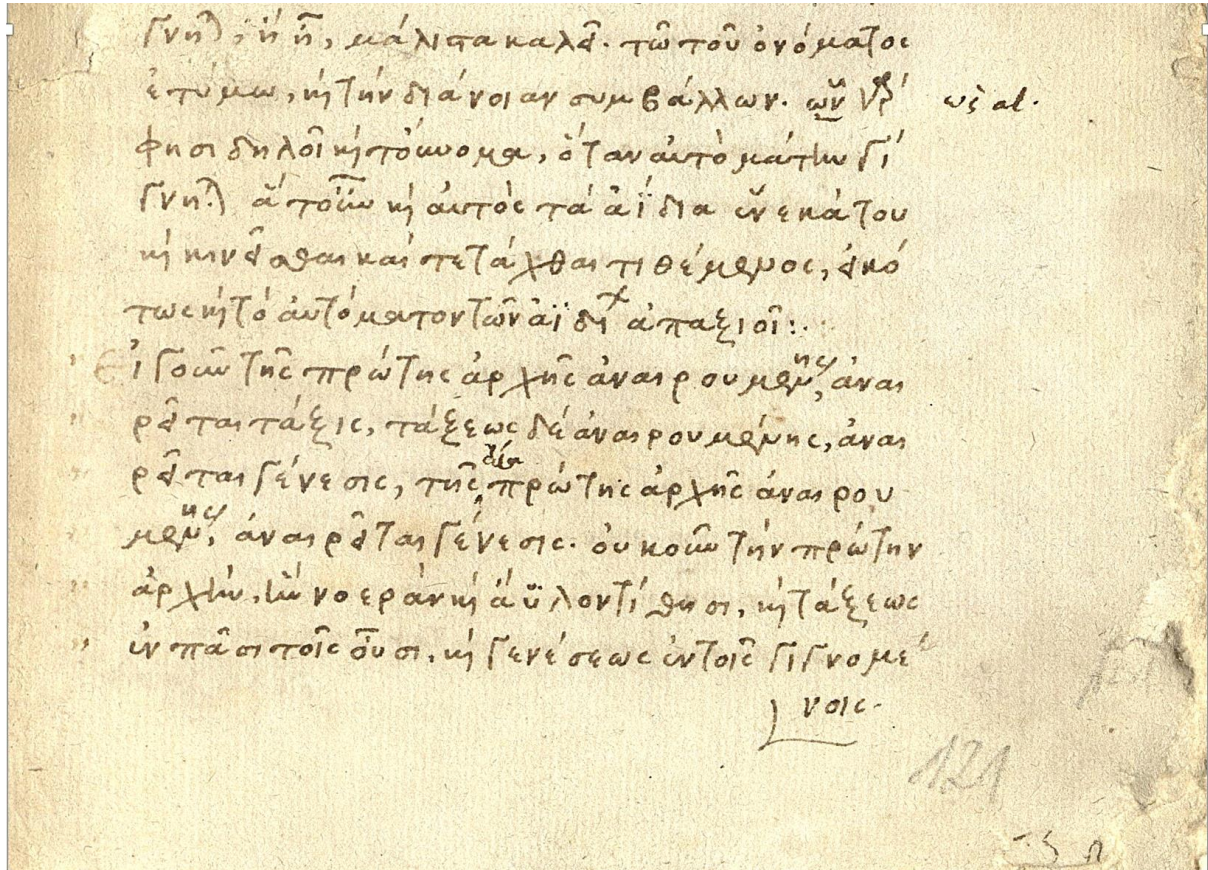 γνηται, ἢ ᾗ, μάλιστα καλεῖ. τῶ τοῦ ὀνόματος
ἐτύμω, καὶ τὴν διάνοιαν συμβάλλων. ὧν γάρ ὡς al.
φησι δηλοῖ καὶ τὀύνομα, ὅταν αὐτὸ μάτην γί
γνηται ἅτ' οὖν καὶ αὐτὸς τὰ ἀΐδια ἕνεκά του
καὶ κινεῖσθαι καὶ τετάχθαι τιθέμενος, εἰκό
τως καὶ τὸ αὐτόματον τῶν ἀϊδίων ἀπαξιοῖ:.
Εἰ γοῦν τῆς πρώτης ἀρχῆς ἀναιρουμένης, ἀναι
ρεῖται τάξις, τάξεως δὲ ἀναιρουμένης, ἀναι
ρεῖται γένεσις, τῆς πρώτης ἀρχῆς ἀναιρου
μένης, ἀναιρεῖται γένεσις. οὐκοῦν τὴν πρώτην
ἀρχὴν, ἣν νοερὰν καὶ ἄϋλον τίθησι, καὶ τάξεως
ἐν πᾶσι τοῖς οὖσι, καὶ γενέσεως ἐν τοῖς γιγνομέ
νοις.
121